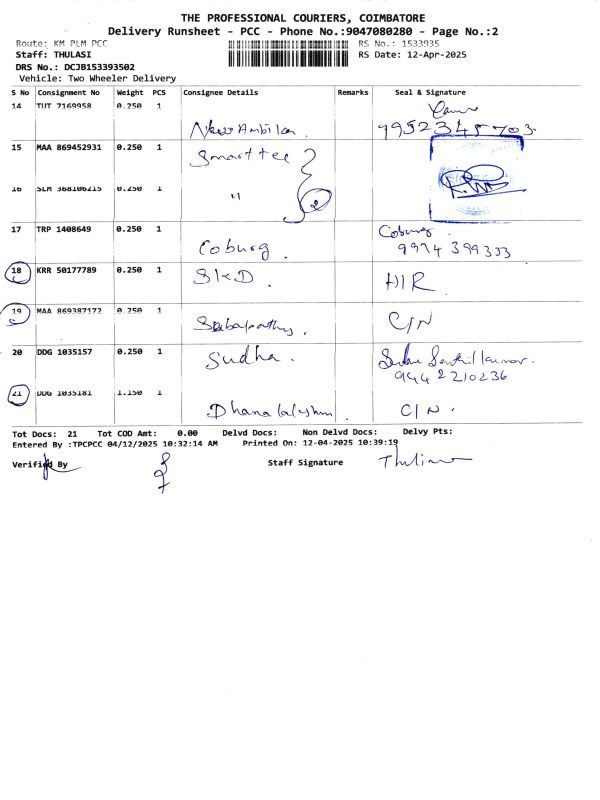 THE PROFESSIONAL COURIERS, COIMBATORE
Delivery Runsheet - PCC - Phone No.:9047080280 - Page No.:2
Route: KM PLM PCC RS No.: 1533935
Staff: THULASI RS Date: 12-Apr-2025
DRS No.: DCJB153393502
Vehicle: Two Wheeler Delivery
S No Consignment No Weight PCS Consignee Details Remarks Seal & Signature
14 TUT 7169958 0.250 1
99523 45703
15 MAA 869452931 0.250 1 Smart tee
16 SLM 368106215 0.250 1 "
17 TRP 1408649 0.250 1 Coburg
9994 399333
18 KRR 50177789 0.250 1 SKD H/R
19 MAA 869387172 0.250 1 Sabapathy C/N
20 DDG 1035157 0.250 1 Sudha
9442210236
21 DDG 1035181 1.150 1 Dhanalakshmi C/N.
Tot Docs: 21 Tot COD Amt: 0.00 Delvd Docs: Non Delvd Docs: Delvy Pts:
Entered By :TPCPCC 04/12/2025 10:32:14 AM Printed On: 12-04-2025 10:39:19
Verified By Staff Signature